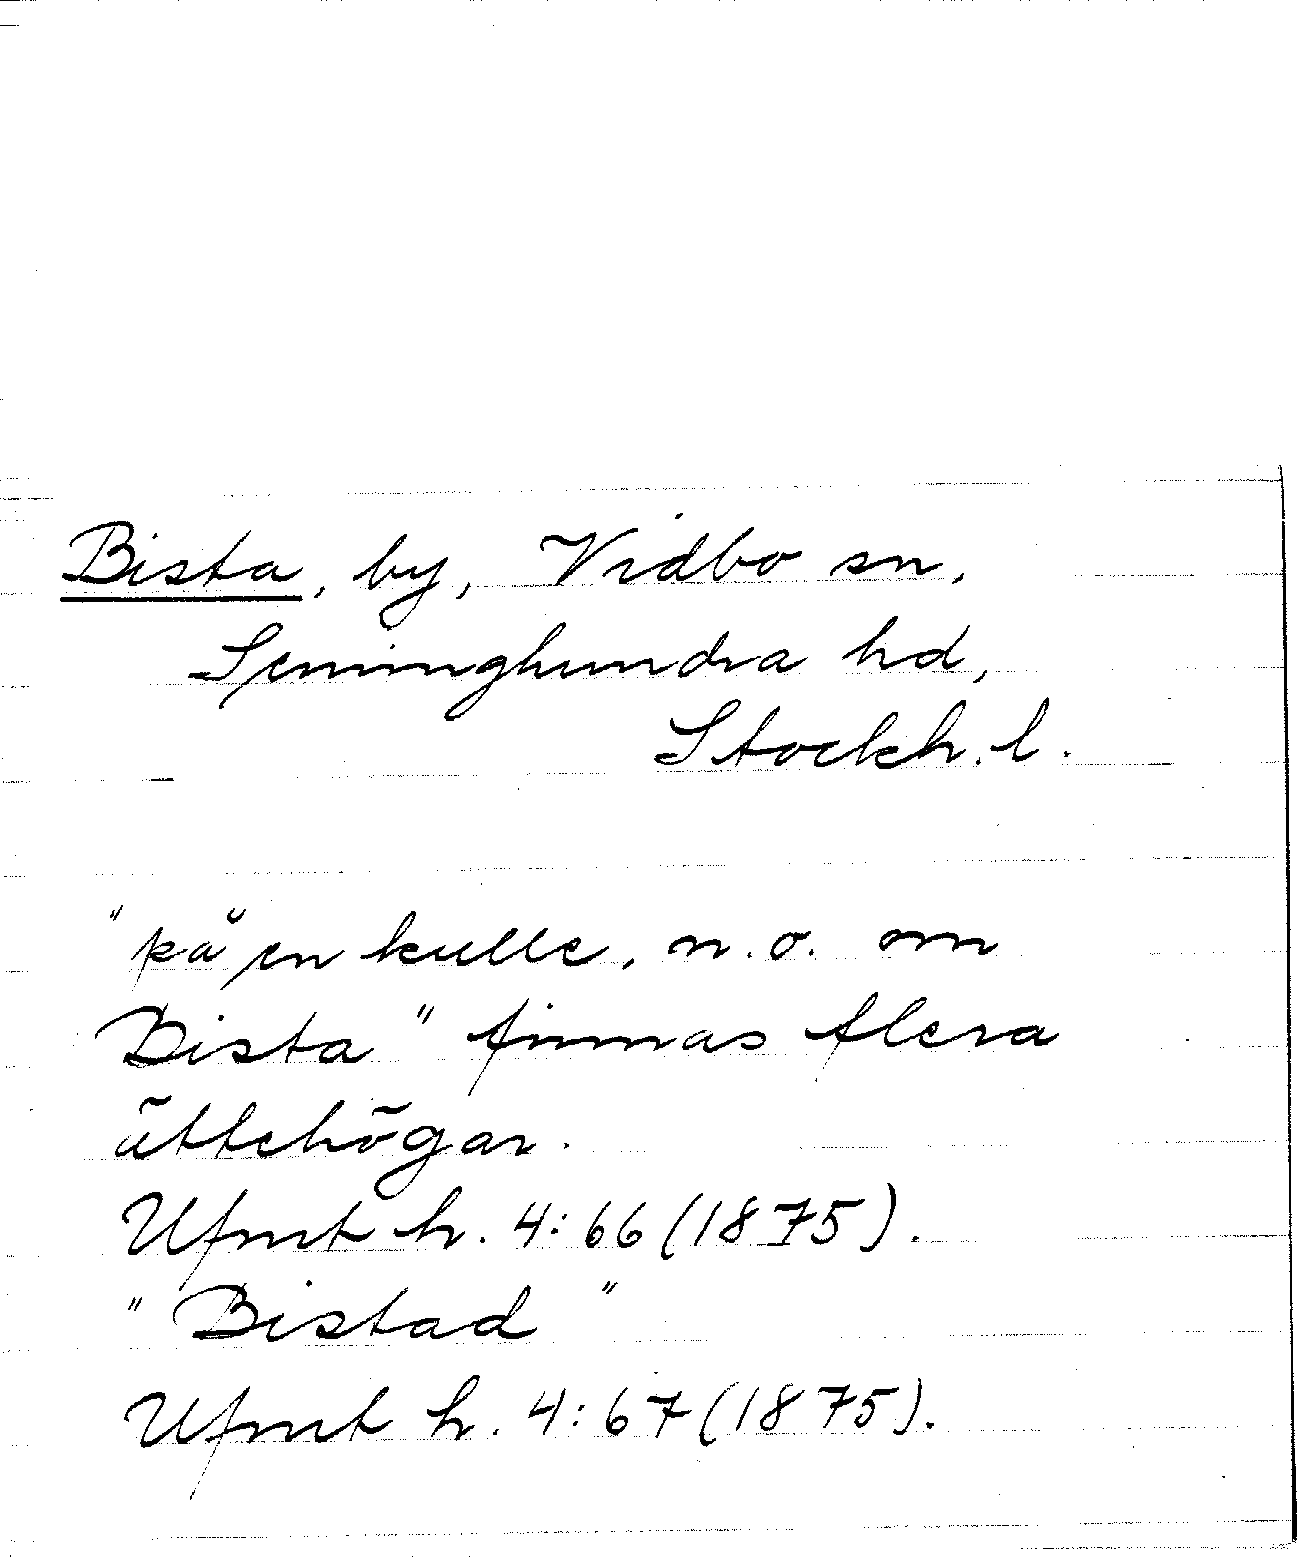 Bista, by, Vidbo sn,
Seminghundra hd,
Stockh. l.
"på en kulle, n.o. om
Bista" finnas flera
ättehögar.
Ufmt h. 4:66 (1875).
"Bistad"
Ufmt h. 4:67 (1875).